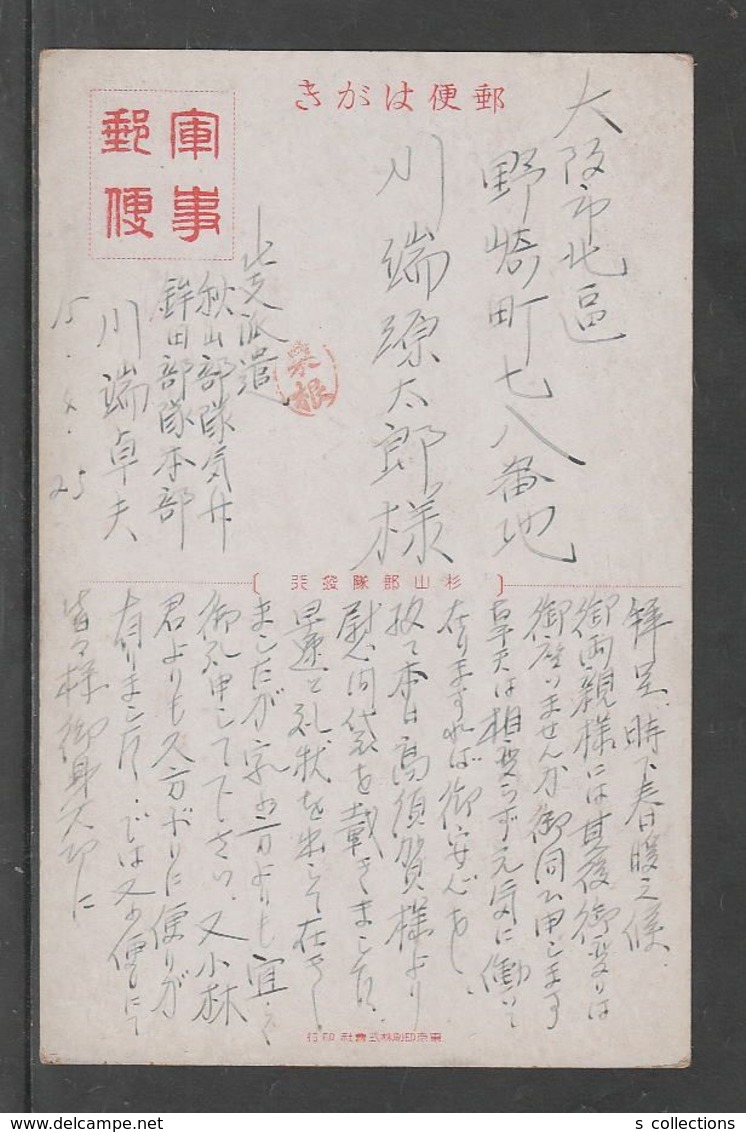 郵便はがき
軍事
郵便
大阪市北區
野崎町七八番地
川端源太郎様
北支派遣
秋山部隊気付
鉾田部隊本部
川端卓夫
15.4.25
杉山部隊發行
拝呈、時下春日暖之候、
御両親様には其後御変りは
御座いませんか御伺ひ申します
卓夫は相変らず元気に働いて
在りますれば御安心あし、
扨て本日高須賀様より
慰問袋を戴きました、
早速と礼状を出して在き
ましたが家の方よりも宜しく
御礼申して下さい、又小林
君よりも久方がりに便りが
有りました、では又の便にて
皆々様御身大切に
東京印刷株式會社印行
s collections